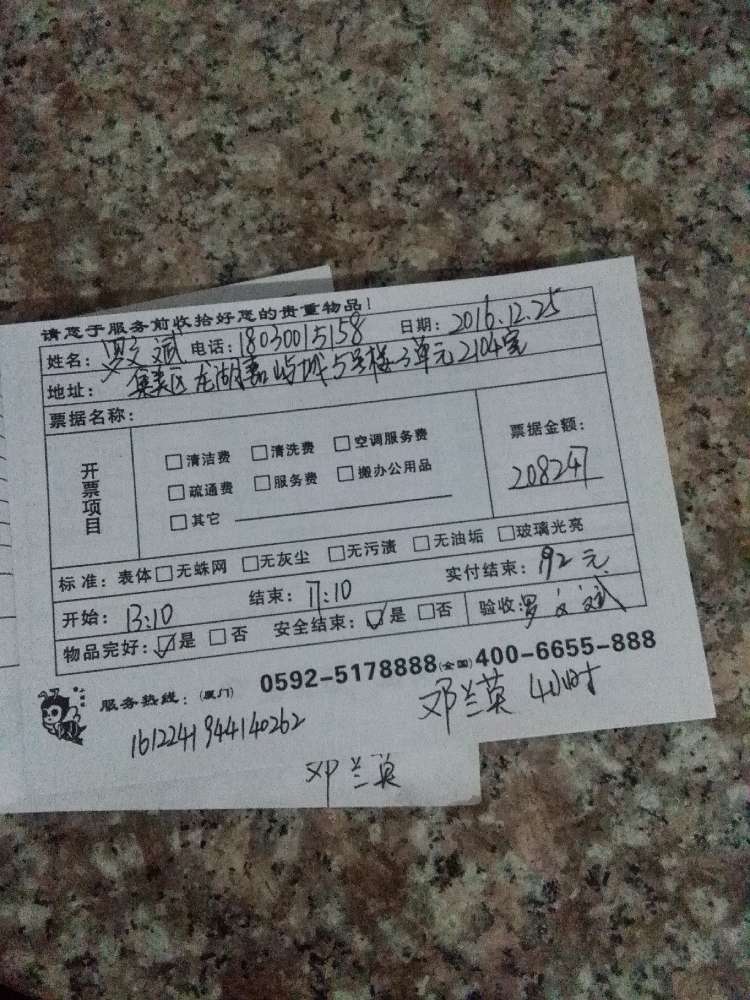 请您于服务前收拾好您的贵重物品！
姓名：罗文斌 电话：18030015158 日期：2016.12.25
地址：集美区龙湖嘉屿城5号楼3单元2104室
票据名称：
开票项目
□清洁费 □清洗费 □空调服务费
□疏通费 □服务费 □搬办公用品
□其它
票据金额：
208247
标准：表体□无蛛网 □无灰尘 □无污渍 □无油垢 □玻璃光亮
开始：13:10 结束：17:10 实付结束：192元
物品完好：☑是 □否 安全结束：☑是 □否 验收：罗文斌
服务热线：（厦门）0592-5178888（全国）400-6655-888
邓兰英 4小时
1612241944140262
邓兰英